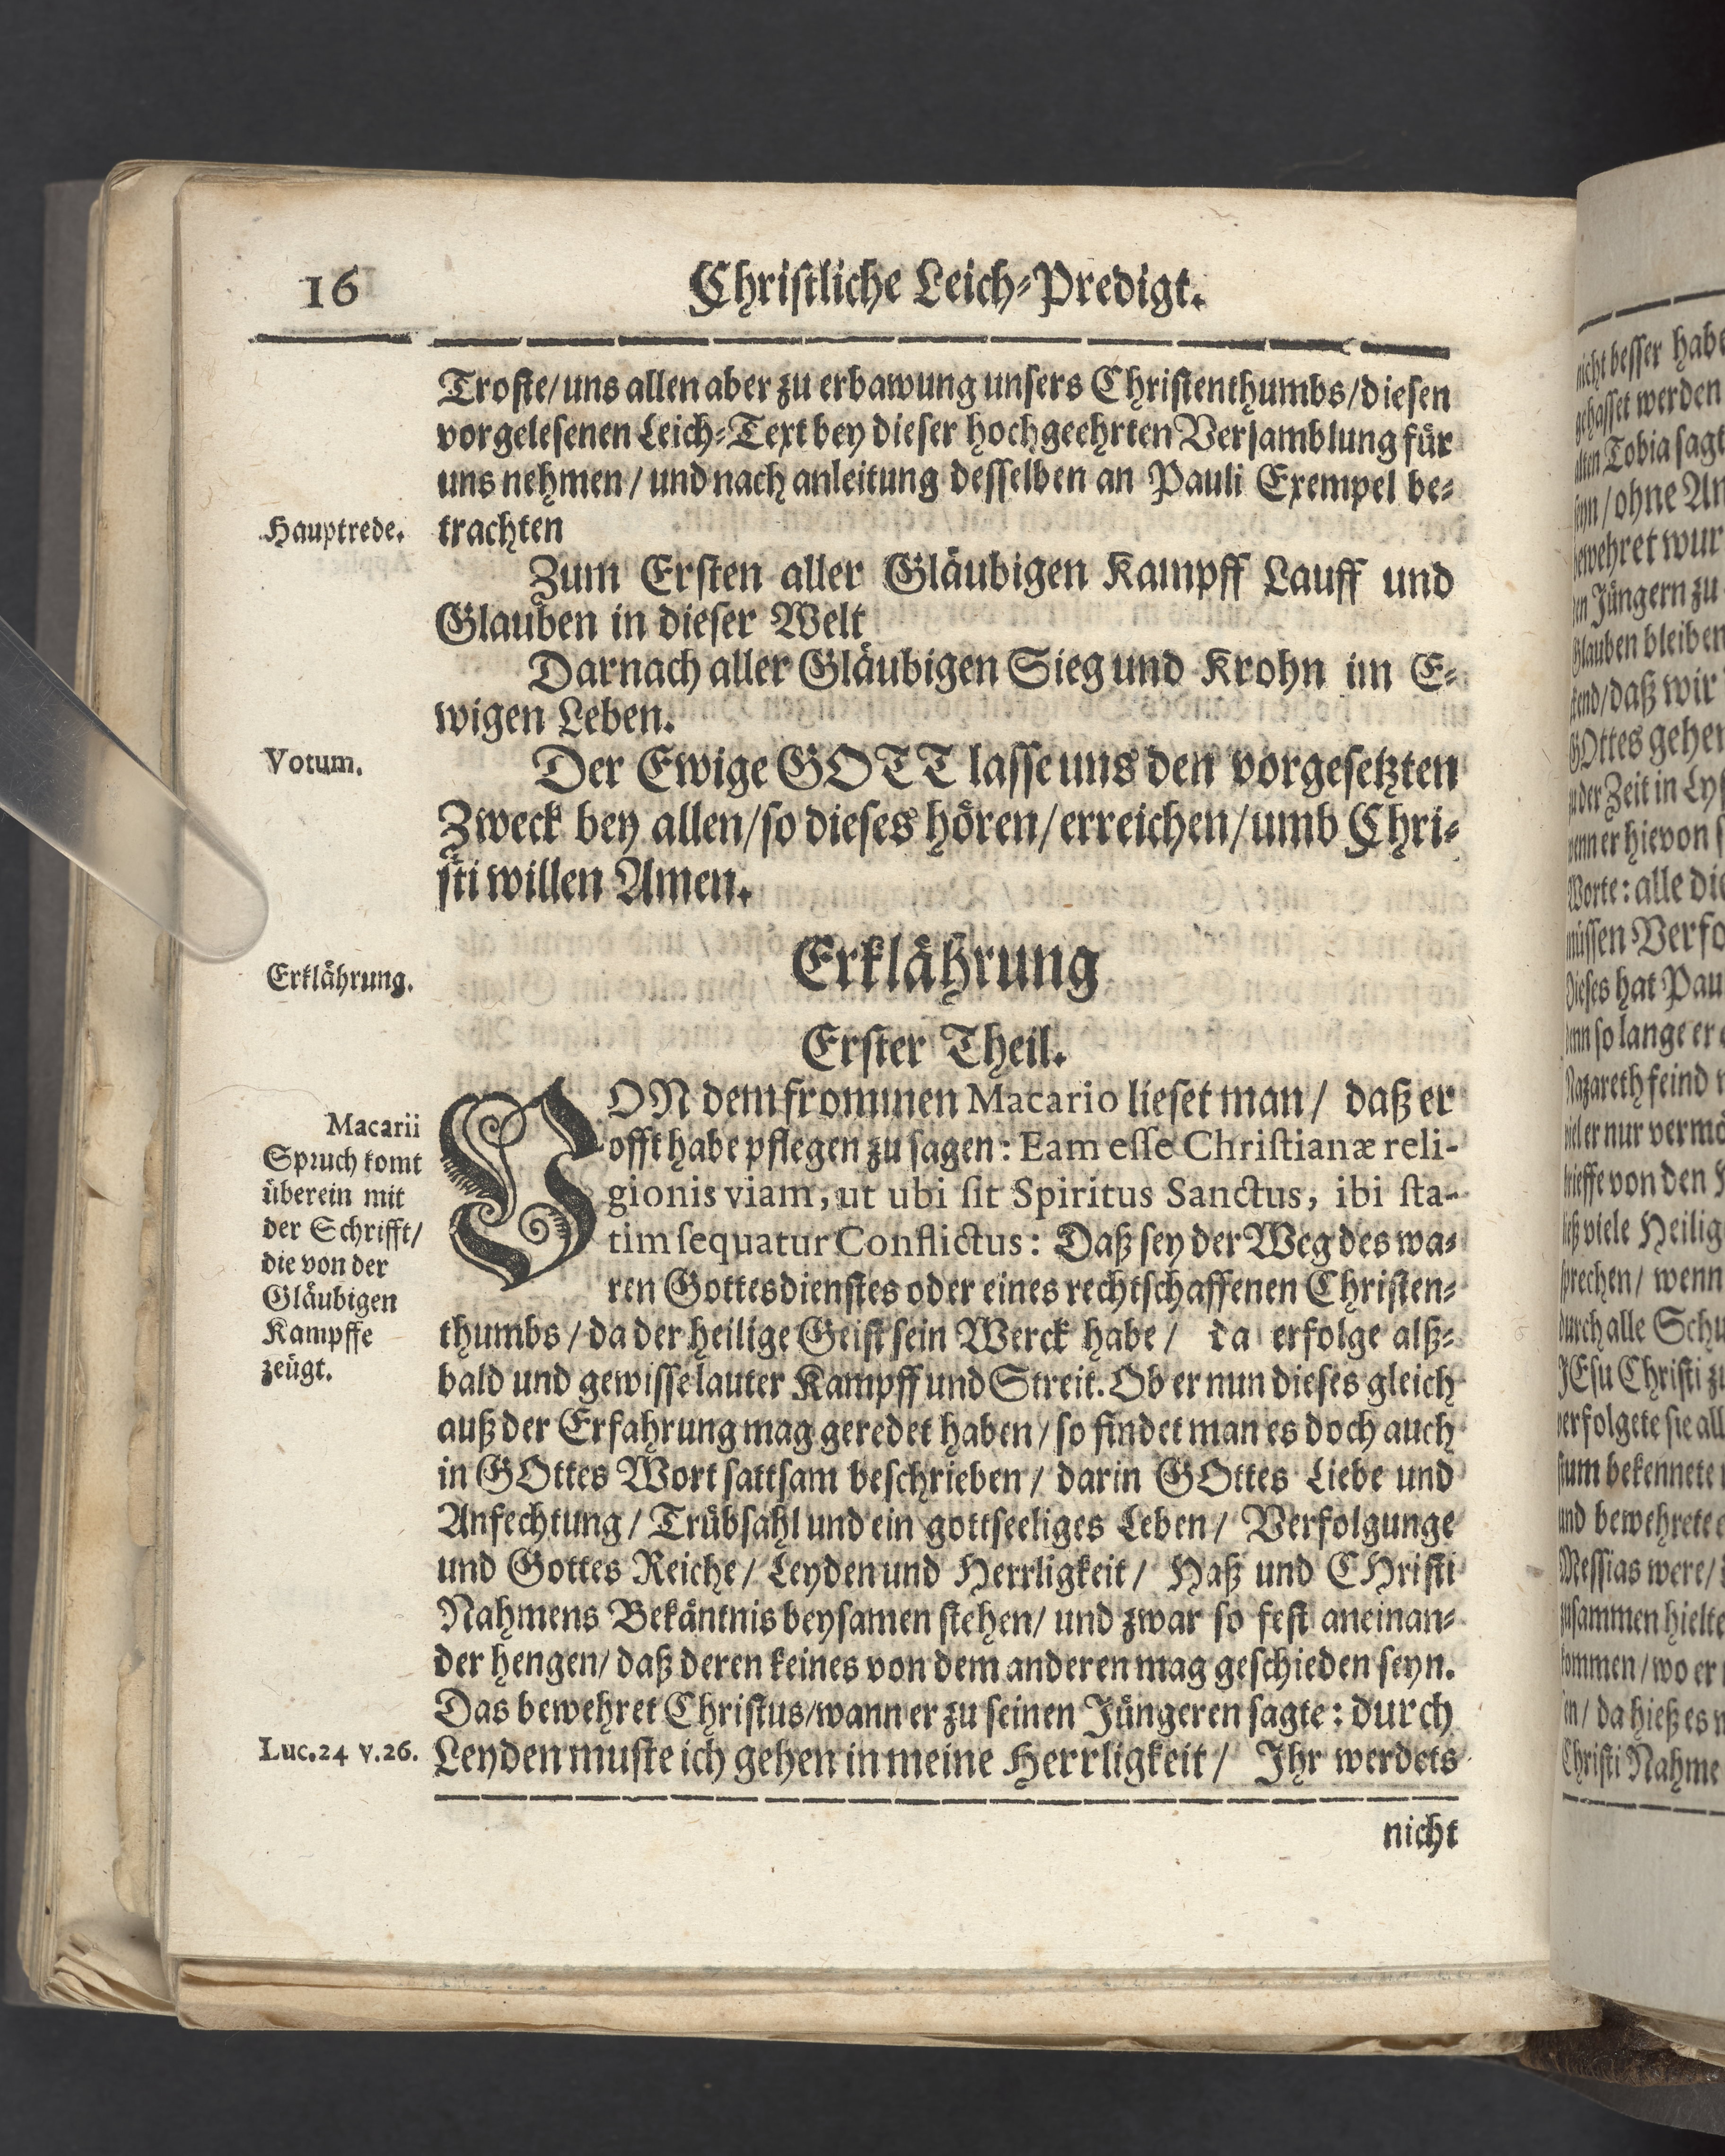 16
Christliche Leich-Predigt.
Troste/uns allen aber zu erbawung unsers Christenthumbs/diesen
vorgelesenen Leich-Text bey dieser hochgeehrten Versamblung für
uns nehmen/und nach anleitung desselben an Pauli Exempel be-
Hauptrede.
trachten
Zum Ersten aller Gläubigen Kampff Lauff und
Glauben in dieser Welt
Darnach aller Gläubigen Sieg und Krohn im E-
wigen Leben.
Votum.
Der Ewige GOTT lasse uns den vorgesetzten
Zweck bey allen/so dieses hören/erreichen/umb Chri-
sti willen Amen.
Erklährung.
Erklährung
Erster Theil.
VON dem frommen Macario lieset man/ daß er
offt habe pflegen zu sagen: Eam esse Christianæ reli-
gionis viam, ut ubi sit Spiritus Sanctus, ibi sta-
tim sequatur Conflictus: Daß sey der Weg des wa-
ren Gottesdienstes oder eines rechtschaffenen Christen-
thumbs/da der heilige Geist sein Werck habe/ da erfolge alß-
bald und gewisse lauter Kampff und Streit. Ob er nun dieses gleich
auß der Erfahrung mag geredet haben/so findet man es doch auch
in GOttes Wort sattsam beschrieben/ darin GOttes Liebe und
Anfechtung/Trübsahl und ein gottseeliges Leben/ Verfolgunge
und Gottes Reiche/ Leyden und Herrligkeit/ Haß und CHristi
Nahmens Bekäntnis beysamen stehen/ und zwar so fest aneinan-
der hengen/daß deren keines von dem anderen mag geschieden seyn.
Das bewehret Christus/wann er zu seinen Jüngeren sagte: durch
Leyden muste ich gehen in meine Herrligkeit/ Ihr werdets
nicht
Macarii
Spruch komt
überein mit
der Schrifft/
die von der
Gläubigen
Kampffe
zeügt.
Luc.24 v.26.
nicht besser habe
gehasset werden
alten Tobia sagt
seyn/ohne An
bewehret wur
en Jüngern zu
Glauben bleiben
daß wir
GOttes gehen
Zeit in Ly
wenn er hievon s
Worte: alle die
müssen Verfo
Dieses hat Pau
denn so lange er
Nazareth feind
viel er nur vermö
von den
ließ viele Heilig
sprechen/ wenn
durch alle Schu
JEsu Christi zu
verfolgete sie all
bekennete
und bewehrete
Messias were/
zusammen hielte
kommen/wo er
da hieß es
Christi Nahme